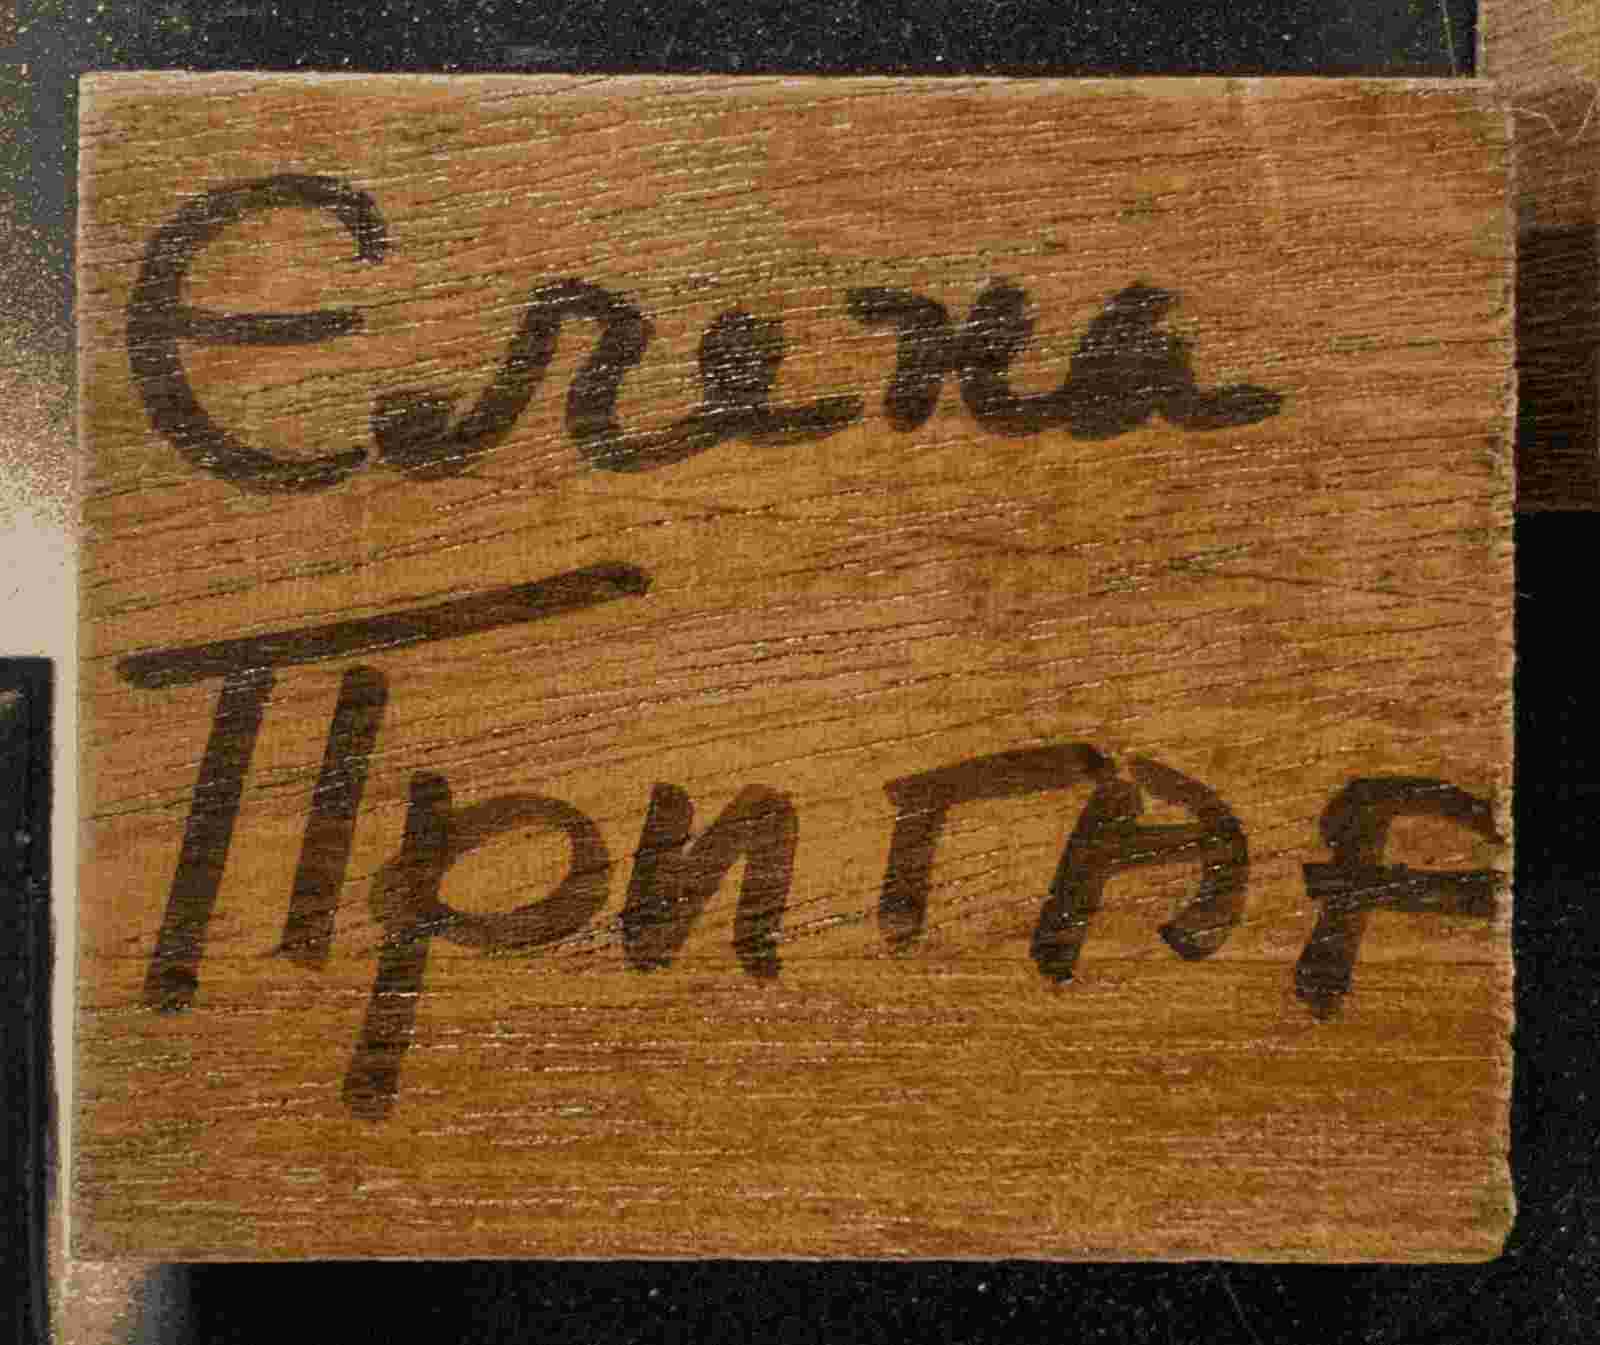 Елена
Пригар